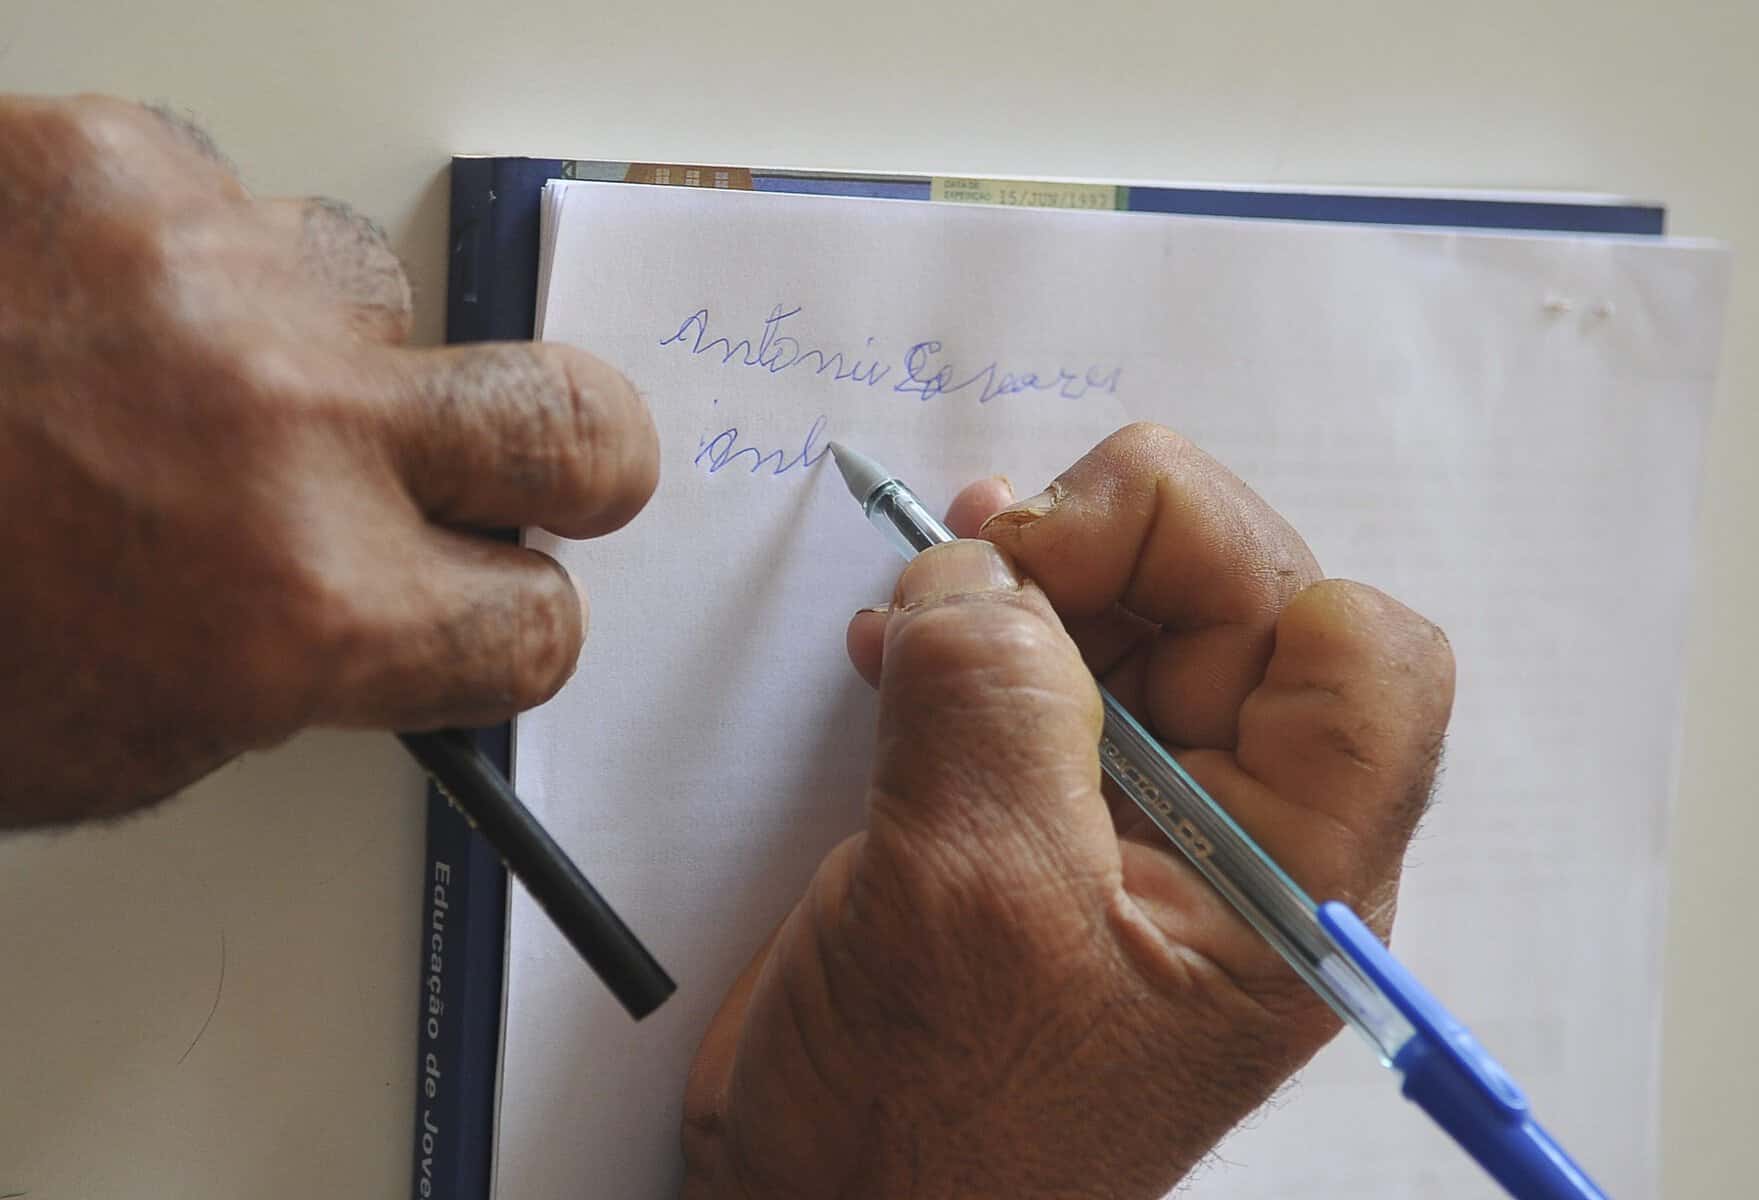 DATA DE
EXPEDIÇÃO 15/JUN/1993
Antonio
Ant
Educação de Jove